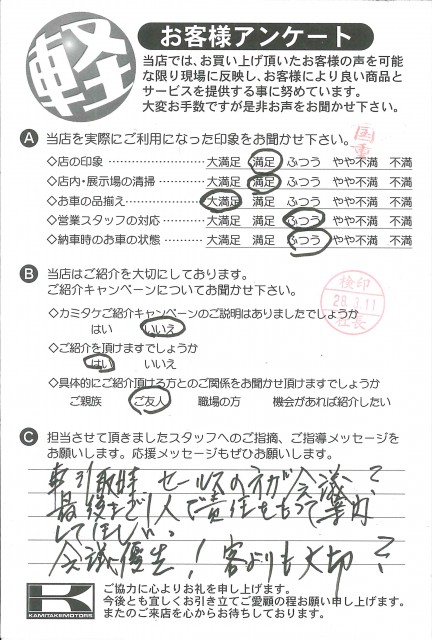 軽
お客様アンケート
当店では、お買い上げ頂いたお客様の声を可能
な限り現場に反映し、お客様により良い商品と
サービスを提供する事に努めています。
大変お手数ですが是非お声をお聞かせ下さい。
A 当店を実際にご利用になった印象をお聞かせ下さい。
◇店の印象 ………………… 大満足 満足 ふつう やや不満 不満
◇店内・展示場の清掃………… 大満足 満足 ふつう やや不満 不満
◇お車の品揃え……………… 大満足 満足 ふつう やや不満 不満
◇営業スタッフの対応………… 大満足 満足 ふつう やや不満 不満
◇納車時のお車の状態………… 大満足 満足 ふつう やや不満 不満
B 当店はご紹介を大切にしております。
ご紹介キャンペーンについてお聞かせ下さい。
検印
28.3.11
社長
◇カミタケご紹介キャンペーンのご説明はありましたでしょうか
はい いいえ
◇ご紹介を頂けますでしょうか
はい いいえ
◇具体的にご紹介頂ける方とのご関係をお聞かせ頂けますでしょうか
ご親族 ご友人 職場の方 機会があれば紹介したい
C 担当させて頂きましたスタッフへのご指摘、ご指導メッセージを
お願いします。応援メッセージもぜひお願いします。
車引取時 セールスの方が会議?
最後まで1人で責任をもって案内
してほしい。
会議優先! 客よりも大切?
K
KAMITAKEMOTORS
ご協力に心よりお礼を申し上げます。
今後とも宜しくお引き立てご愛顧の程お願い申し上げます。
またのご来店を心からお待ちしております。